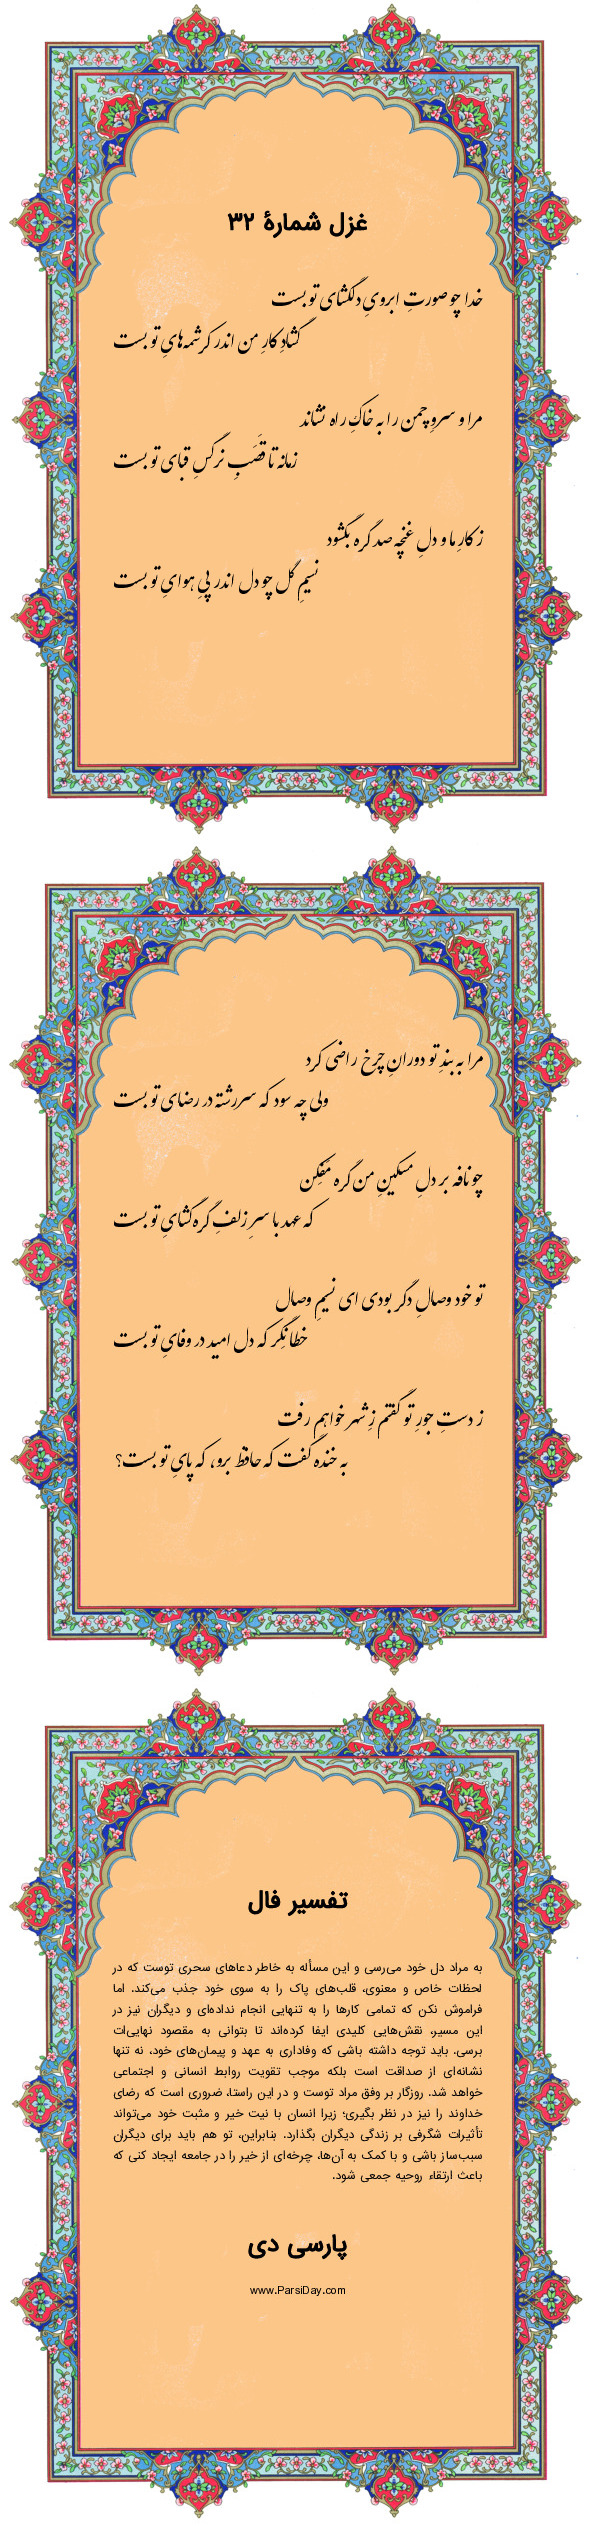 غزل شمارهٔ ۳۲
خدا چو صورتِ ابرویِ دلگشای تو بست
گشادِ کارِ من اندر کرشمه‌هایِ تو بست
مرا و سروِ چمن را به خاکِ راه نشاند
زمانه تا قَصَبِ نرگسِ قبای تو بست
ز کارِ ما و دلِ غنچه صد گره بگشود
نسیمِ گل چو دل اندر پیِ هوایِ تو بست
مرا به بندِ تو دورانِ چرخ راضی کرد
ولی چه سود که سررشته در رضای تو بست
چو نافه بر دلِ مسکینِ من گره مَفِکن
که عهد با سرِ زلفِ گره گشایِ تو بست
تو خود وصالِ دگر بودی ای نسیمِ وصال
خطا نِگر که دل امید در وفایِ تو بست
ز دستِ جورِ تو گفتم زِ شهر خواهم رفت
به خنده گفت که حافظ برو، که پایِ تو بست؟
تفسیر فال
به مراد دل خود می‌رسی و این مسأله به خاطر دعاهای سحری توست که در
لحظات خاص و معنوی، قلب‌های پاک را به سوی خود جذب می‌کند. اما
فراموش نکن که تمامی کارها را به تنهایی انجام نداده‌ای و دیگران نیز در
این مسیر، نقش‌هایی کلیدی ایفا کرده‌اند تا بتوانی به مقصود نهایی‌ات
برسی. باید توجه داشته باشی که وفاداری به عهد و پیمان‌های خود، نه تنها
نشانه‌ای از صداقت است بلکه موجب تقویت روابط انسانی و اجتماعی
خواهد شد. روزگار بر وفق مراد توست و در این راستا، ضروری است که رضای
خداوند را نیز در نظر بگیری؛ زیرا انسان با نیت خیر و مثبت خود می‌تواند
تأثیرات شگرفی بر زندگی دیگران بگذارد. بنابراین، تو هم باید برای دیگران
سبب‌ساز باشی و با کمک به آن‌ها، چرخه‌ای از خیر را در جامعه ایجاد کنی که
باعث ارتقاء روحیه جمعی شود.
پارسی دی
www.ParsiDay.com